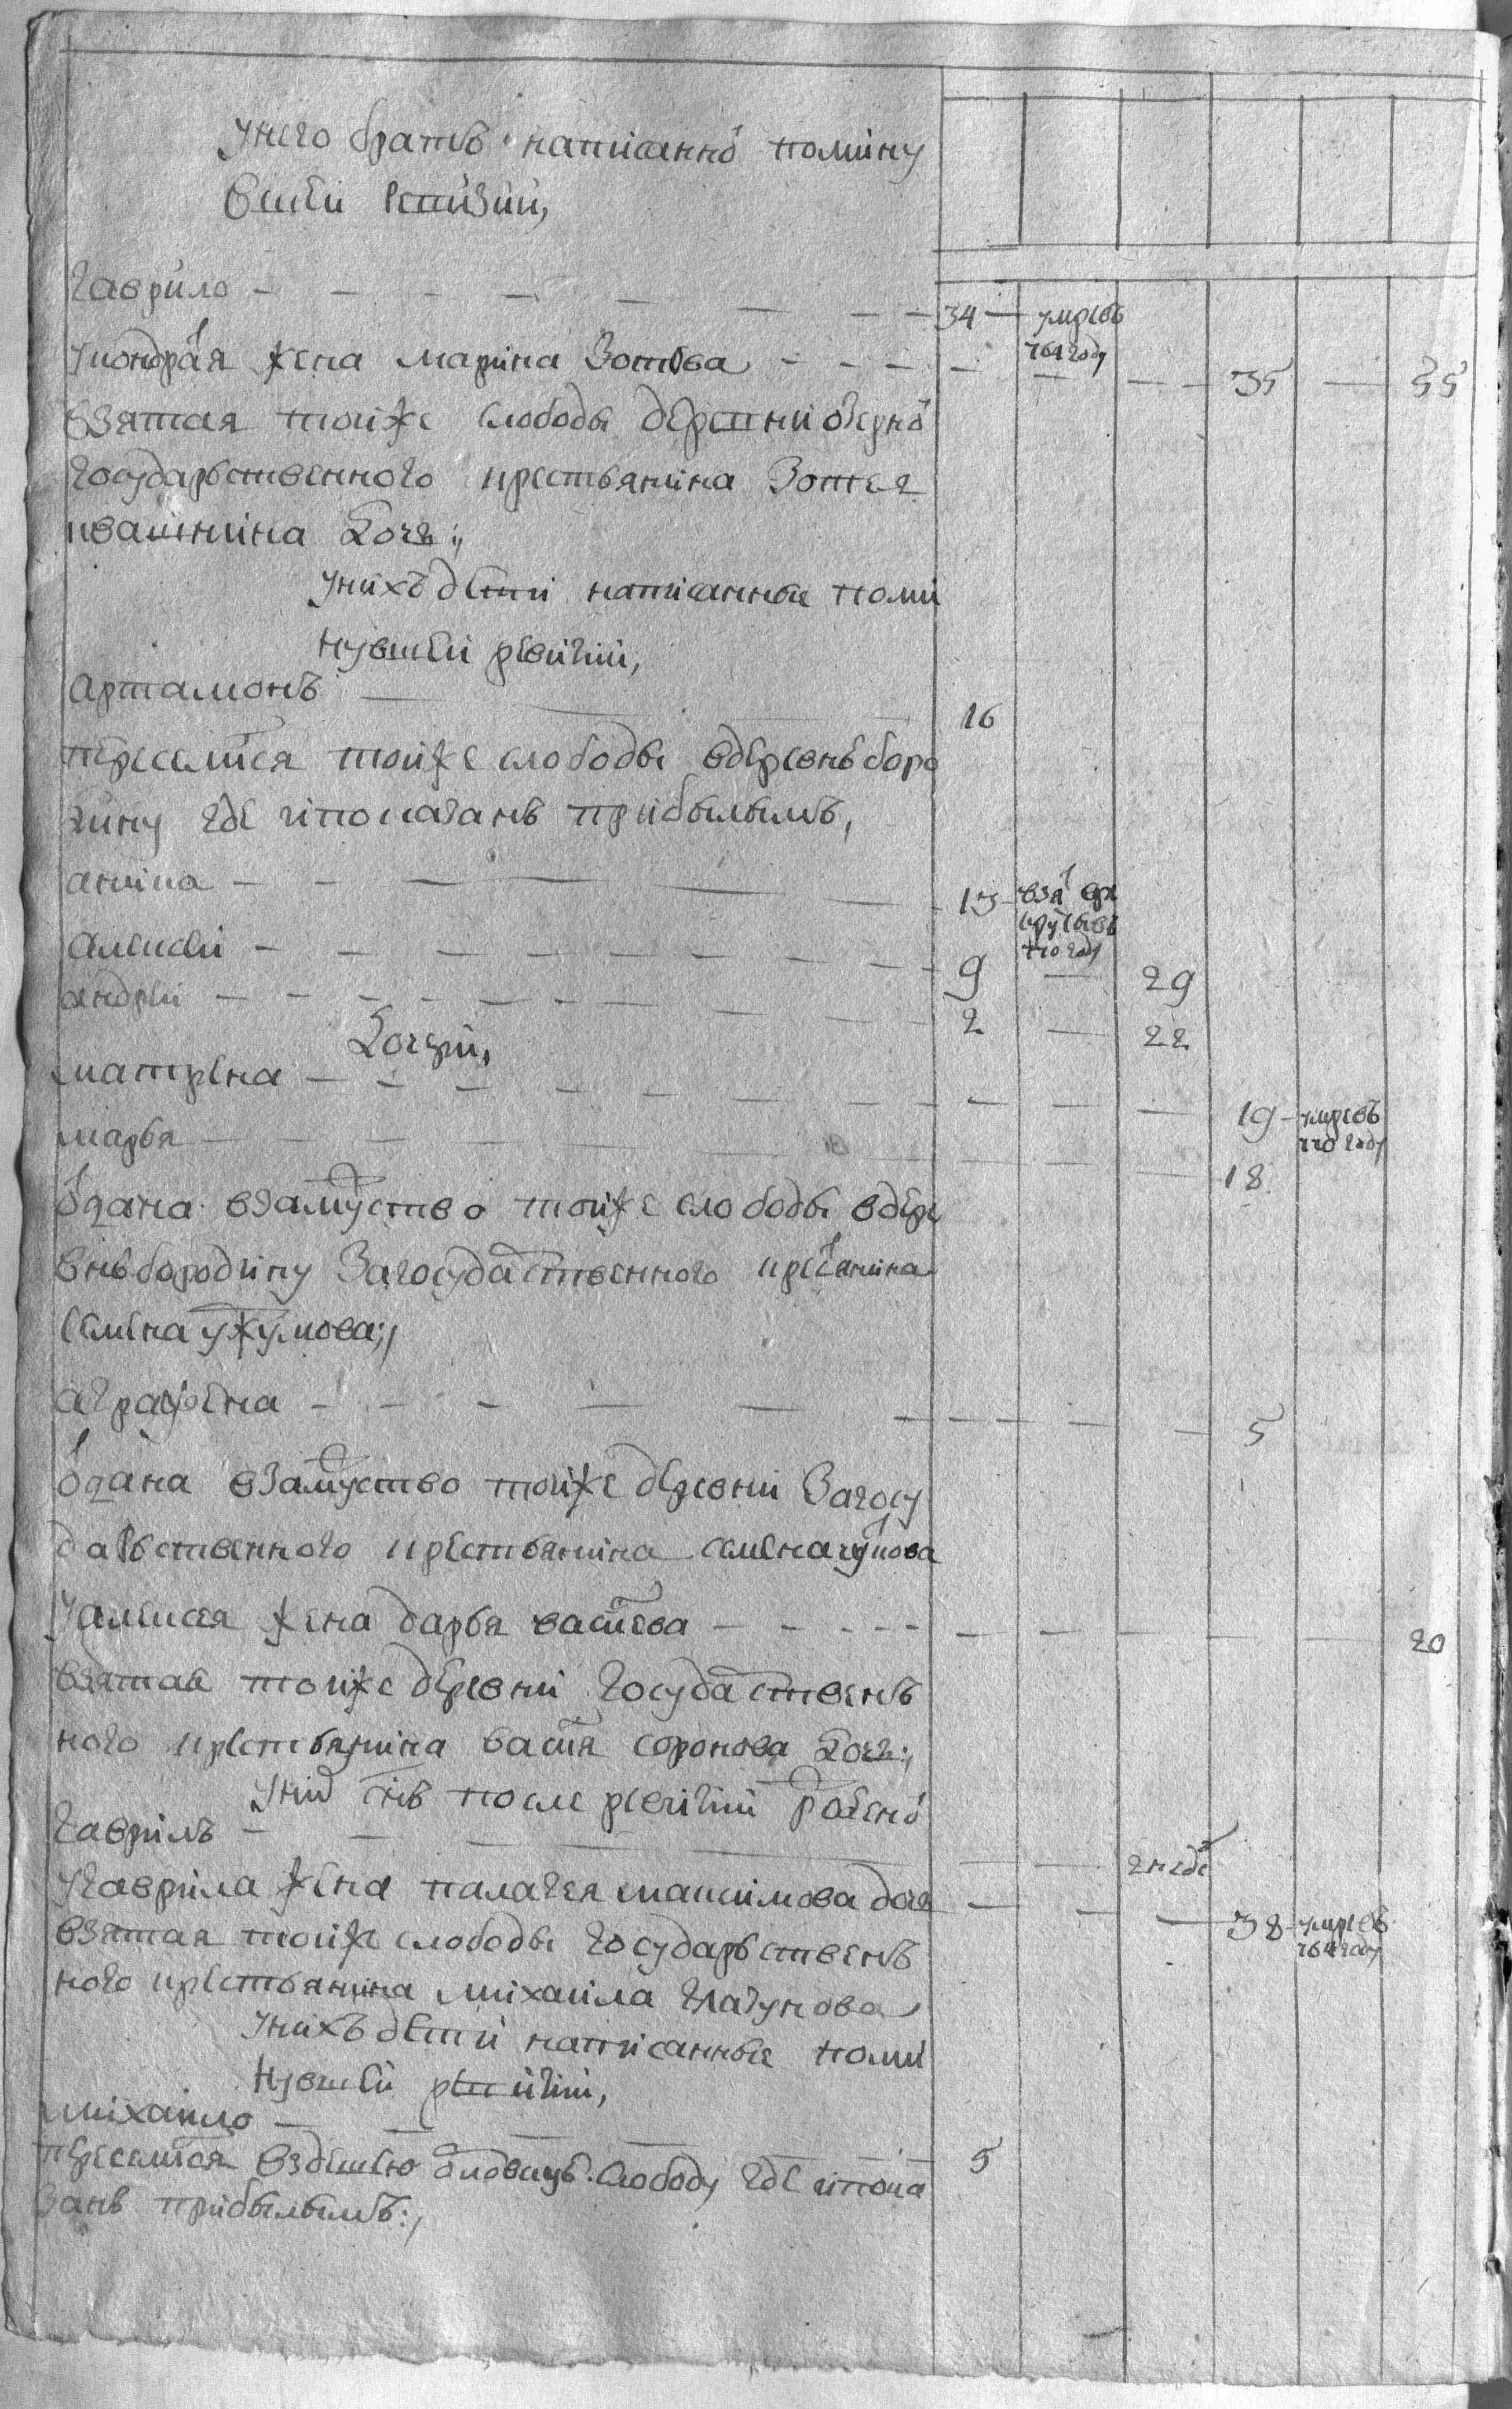 унего братъ написанно помину
вшеи ревизии,
гаврило — 34 — умревъ
764 году
укондратя жена марина зотѣева — 35 — 55
взятая тоиже слободы деревни озерно
государственного крестьянина зотея
квашнина дочь;
унихъ дети написанные поми
нувшеи ревизии,
артамонъ — 16
переселился тоиже слободы вдеревнь боро
дину где и показанъ прибылымъ,
аника — 13 — взят вре
круты въ
770 году
алексеи — 9 — 29
андреи — 2 — 22
дочери,
матрена — 19 — умревъ
770 году
марья — 18
отдана взамуство тоиже слободы вдере
внь бородину загосударственного крестьянина
семена ужумова;
аграфена — 5
отдана взамуство тоиже деревни загосу
дарьственного крестьянина семена
уалексея жена дарья васильева — 20
взятая тоиже деревни государственъ
ного крестьянина василья сорокова дочь;
уних снъ после ревизии рожденъ
гаврилъ — 2 недѣ
угаврила жена палагея максимова дочь — 38 — умревъ
764 году
взятая тоиже слободы государьственъ
ного крестьянина михаила глагунова
унихъ дети написанные поми
нувшеи ревизии,
михаило — 5
переселился вздешнею слободу где и пока
занъ прибылымъ;